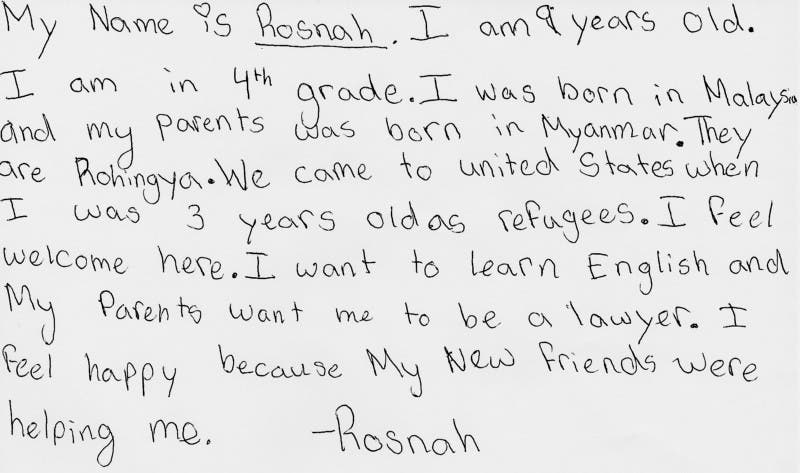 My Name is Rosnah. I am 9 years old.
I am in 4th grade. I was born in Malaysia
and my parents was born in Myanmar. They
are Rohingya. We came to united States when
I was 3 years old as refugees. I feel
welcome here. I want to learn English and
My Parents want me to be a lawyer. I
feel happy because My New friends were
helping me. -Rosnah